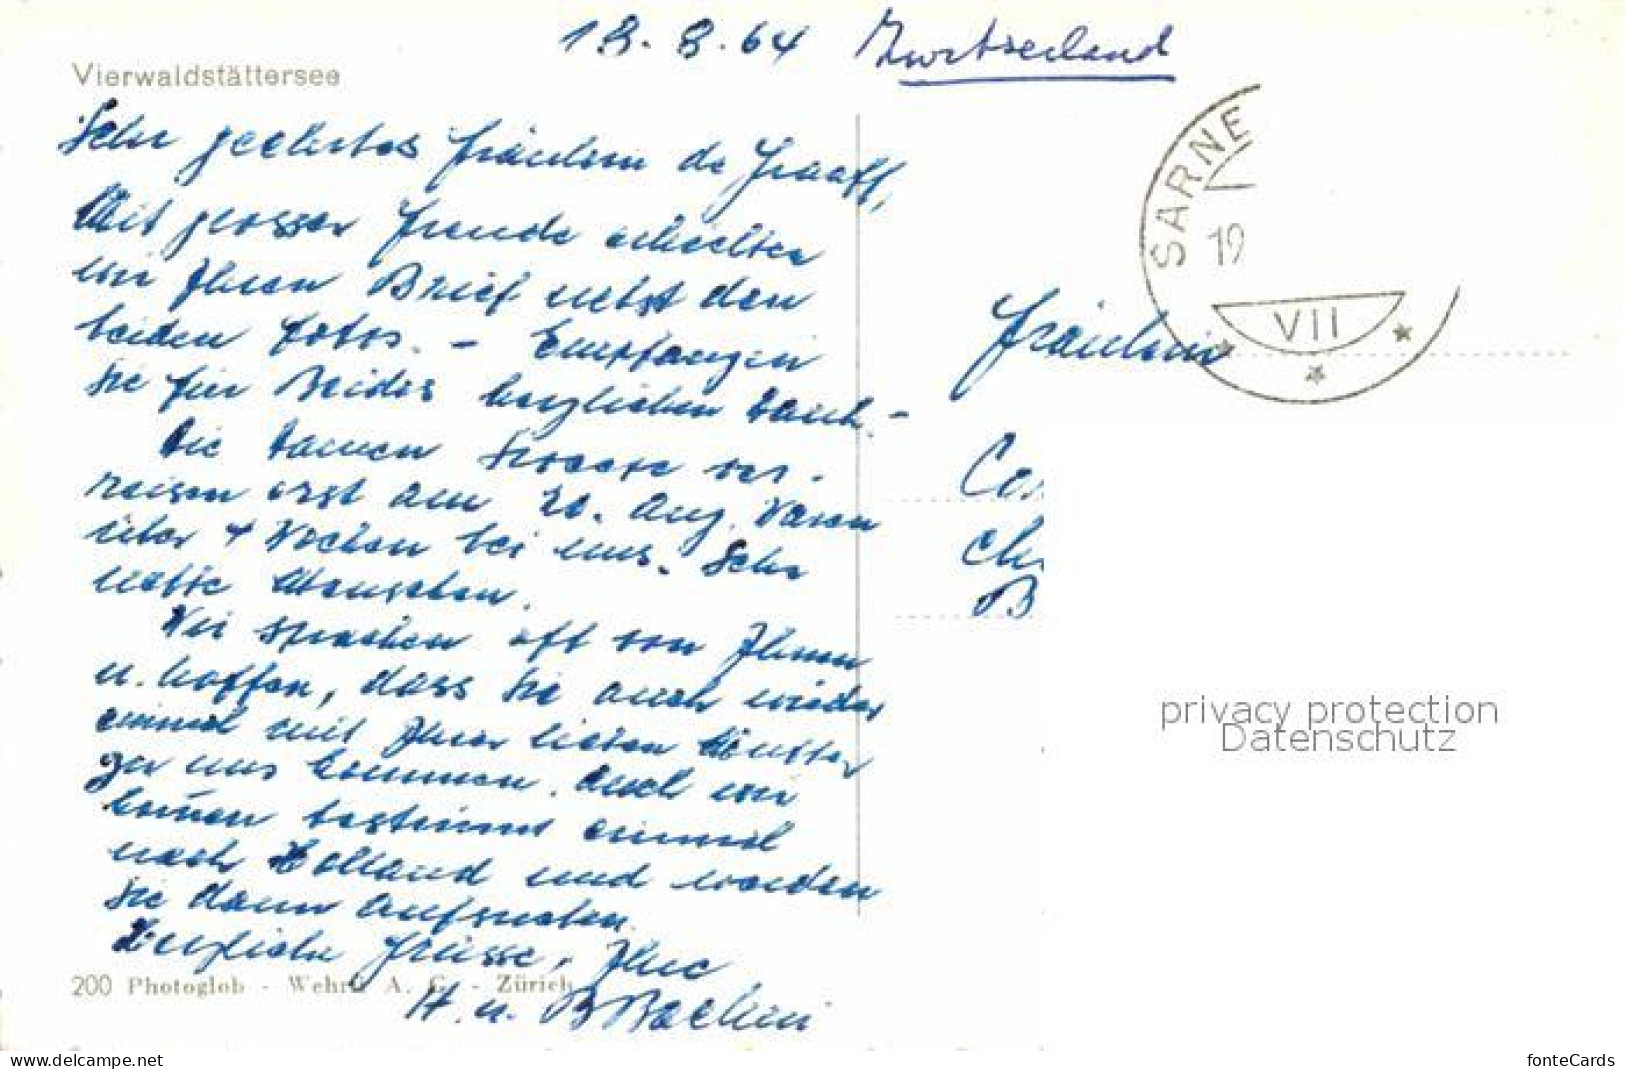 18.8.64 Zwitserland
Vierwaldstättersee
Sehr geehrtes Fräulein de Graaff,
Mit grosser Freude erhielten
wir Ihren Brief nebst den
beiden Fotos. - Empfangen
Sie für Beides herzlichen Dank. -
Die Damen ver-
reisen erst am 20. Aug. Waren
über 4 Wochen bei uns. Sehr
nette Menschen.
Wir sprachen oft von Ihnen
u. hoffen, dass Sie auch wieder
einmal mit Ihrer lieben Mutter
zu uns kommen. Auch wir
kommen bestimmt einmal
nach Holland und werden
Sie dann aufsuchen.
Herzliche Grüsse, Ihre
H. u. B
200 Photoglob - Wehrli A. G. - Zürich
SARNE
19
VII
Fräulein
B
privacy protection
Datenschutz
www.delcampe.net
fonteCards